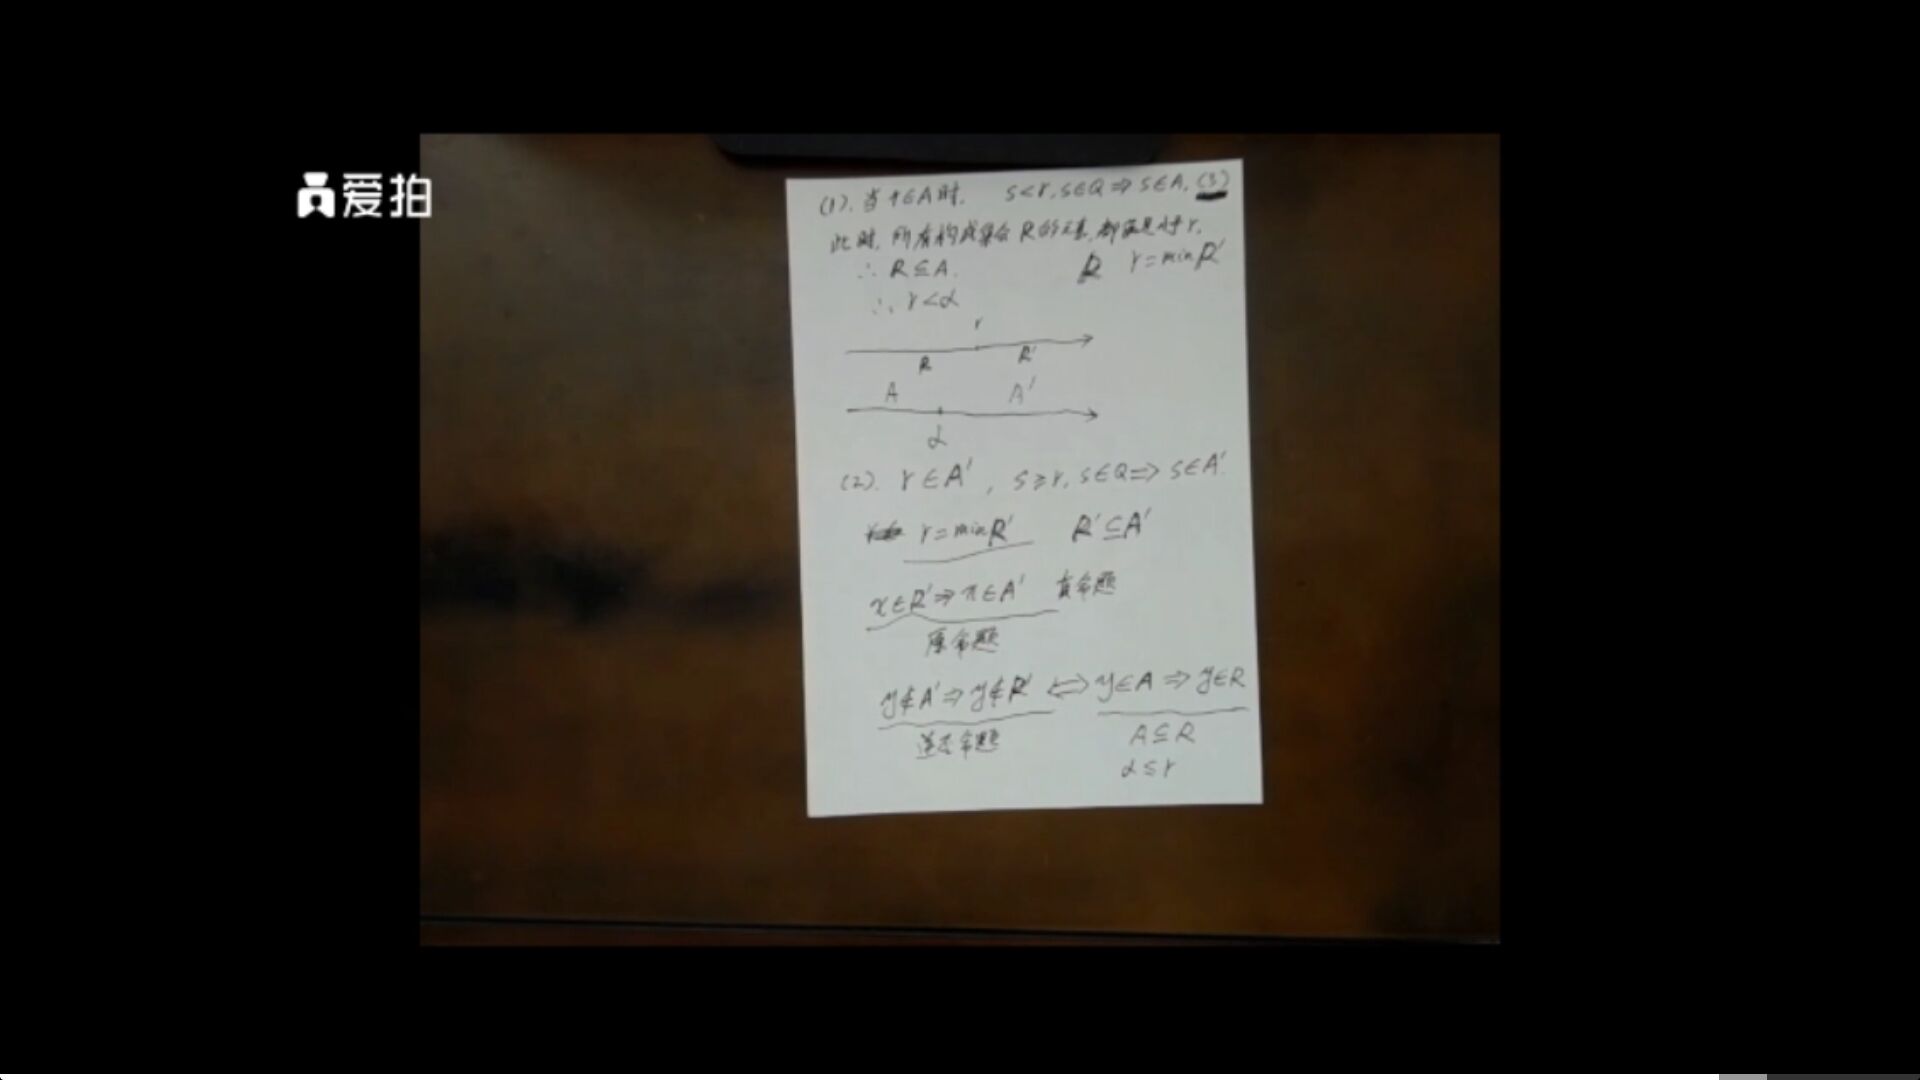 爱拍
(1). 当 r∈A时, s<r, s∈Q⇒s∈A. (3)
此时, 所有构成集合R的元素, 都满足小于r.
∴ R⊆A. R r=minR'
∴ r<α
r
R R'
A A'
α
(2). r∈A', s≥r, s∈Q⇒s∈A'.
r=minR' R'⊆A'
x∈R'⇒x∈A' 真命题
原命题
y∉A'⇒y∉R' ⇔ y∈A⇒y∈R
逆否命题 A⊆R
α≤r